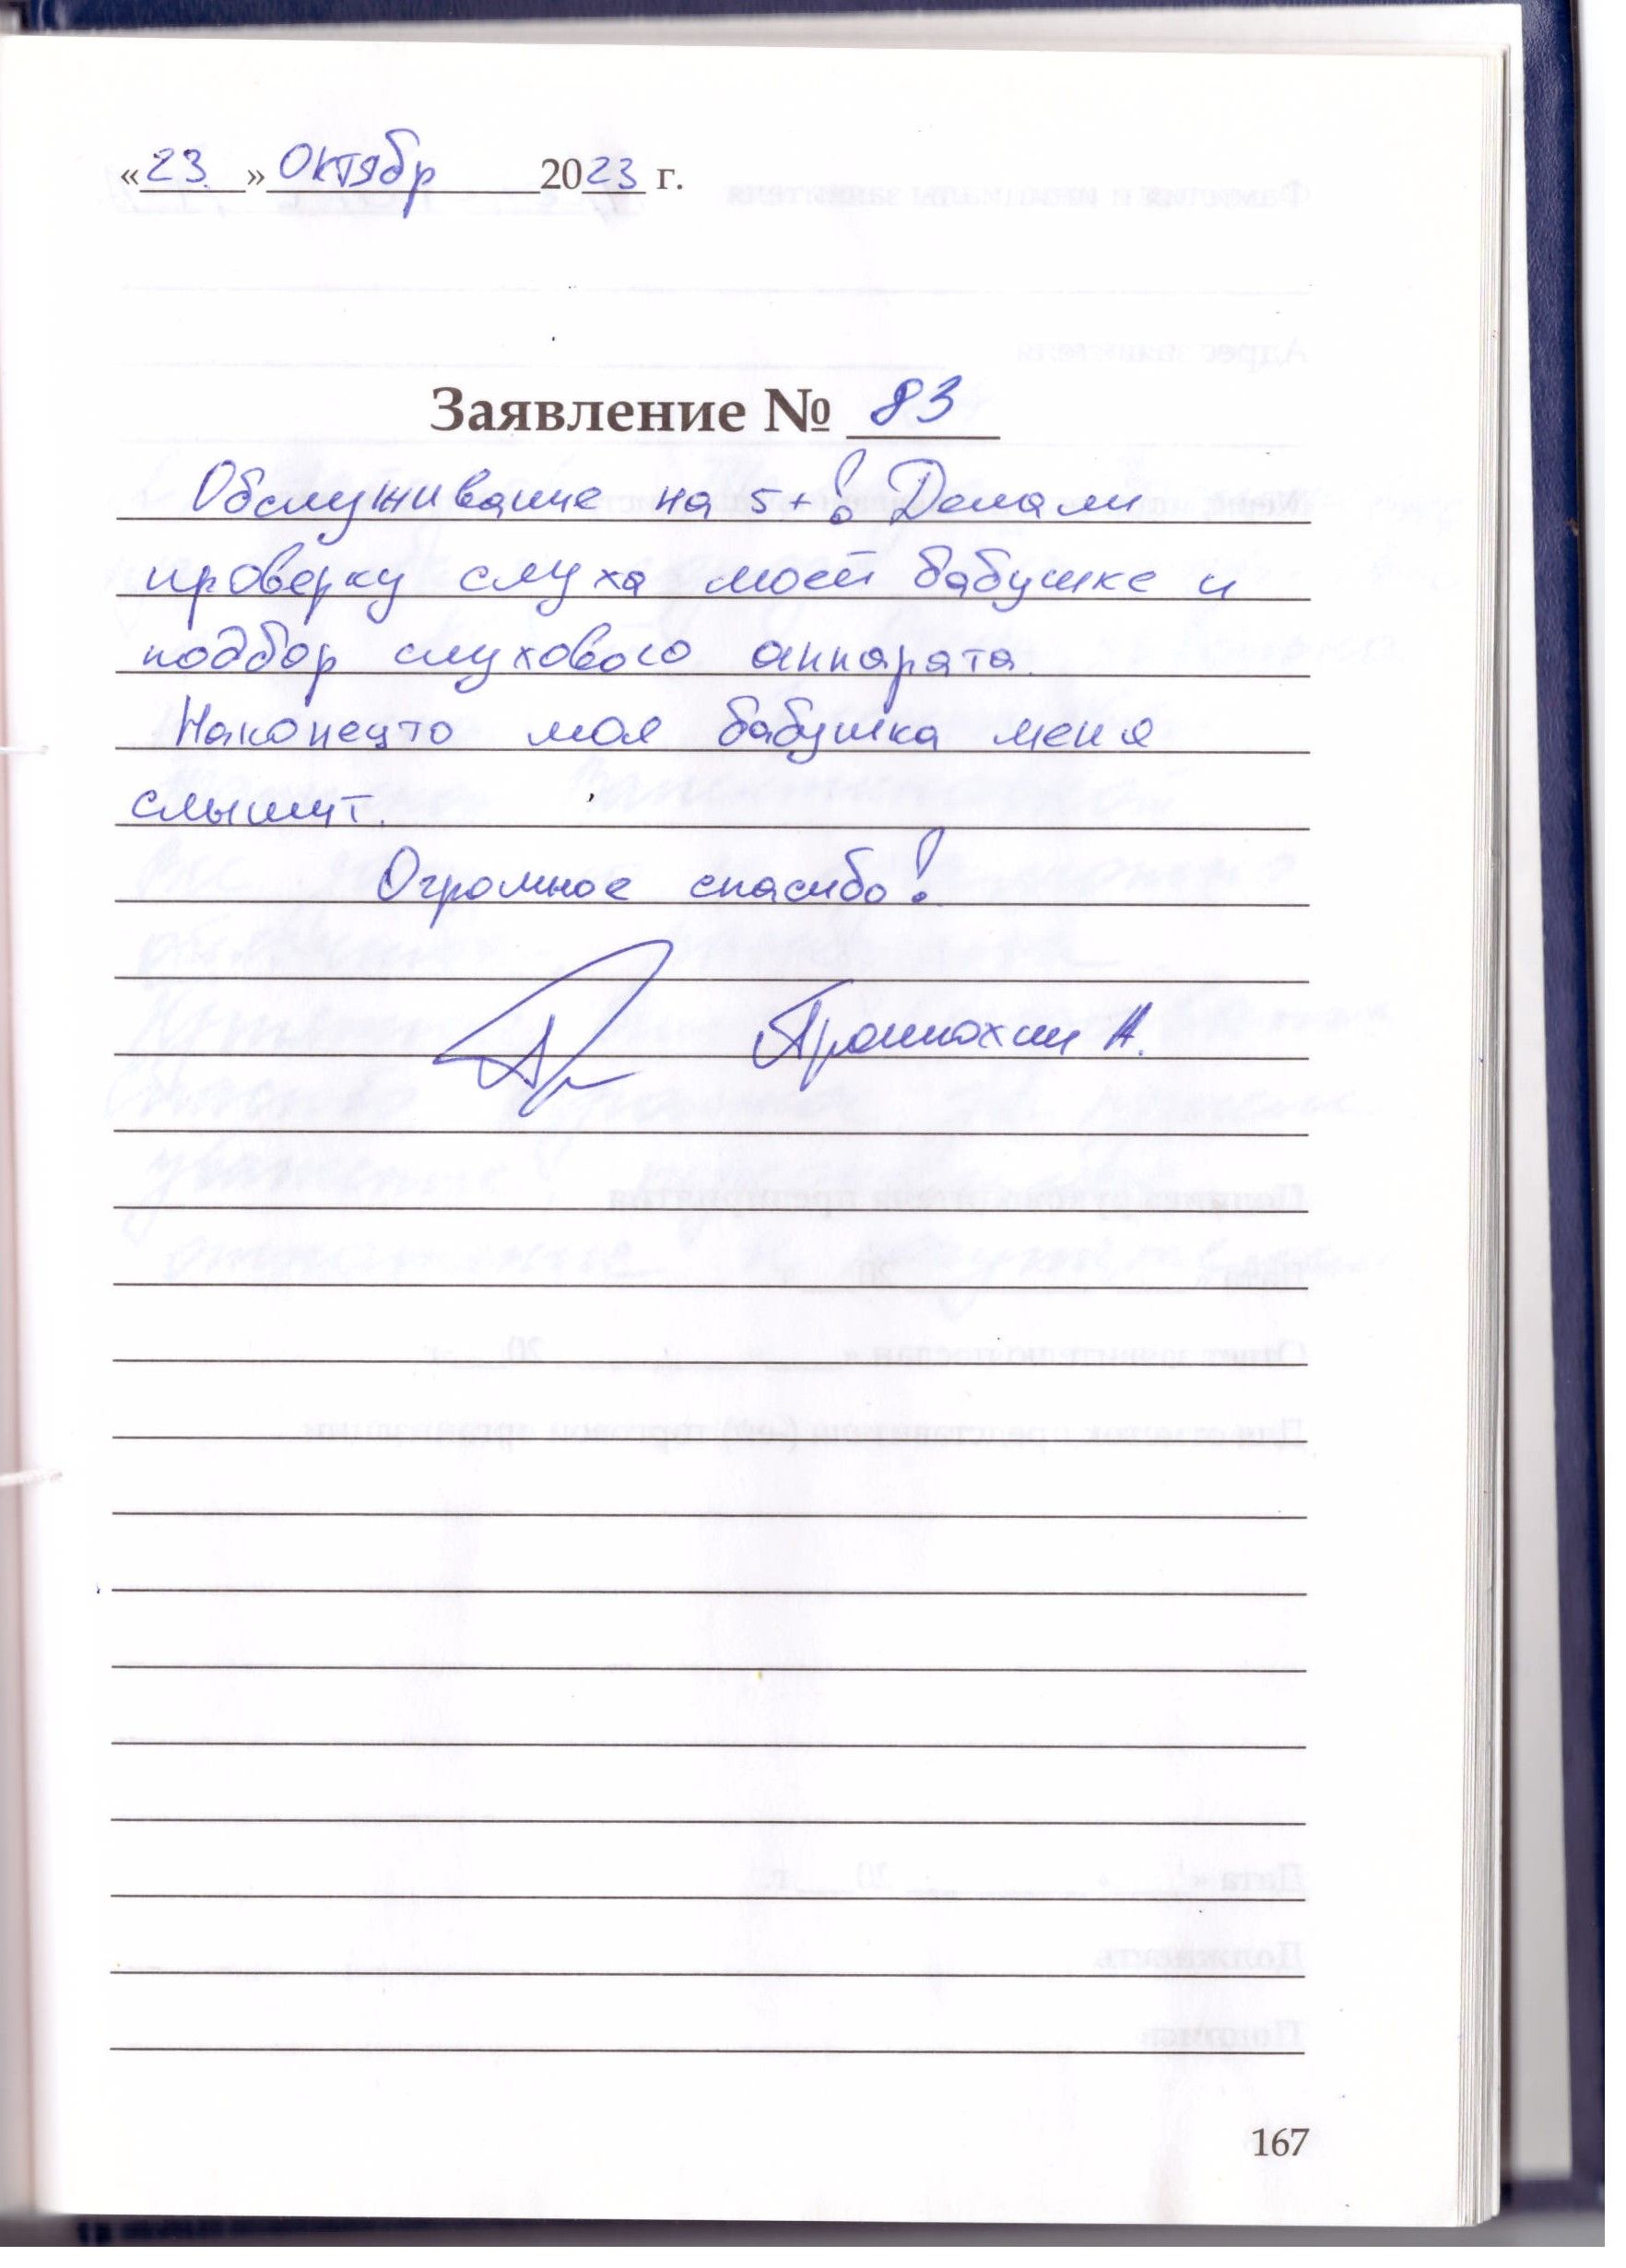 «23» Октябр 2023 г.
Заявление № 83
Обслуживание на 5+! Делали
проверку слуха моей бабушке и
подбор слухового аппарата.
Наконецто моя бабушка меня
слышит.
Огромное спасибо!
А.
167